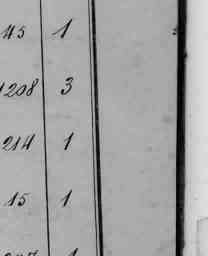 45 1
1208 3
214 1
15 1
1